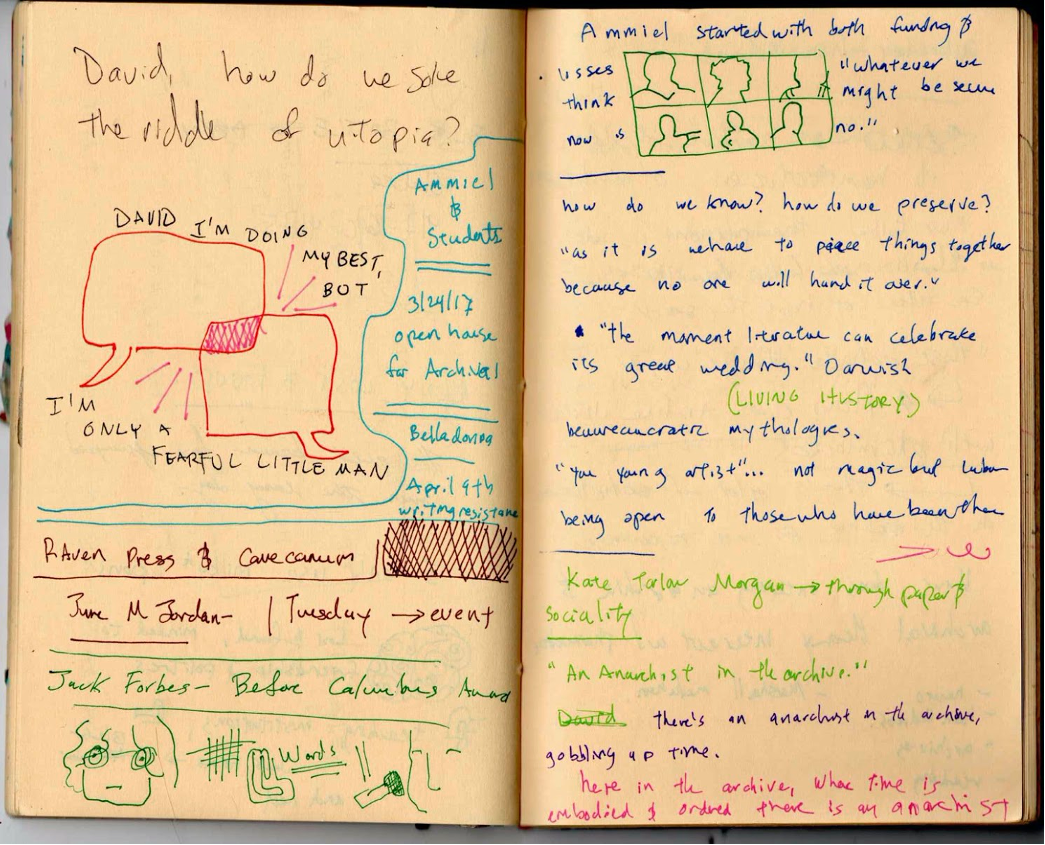 David, how do we solve
the riddle of utopia?
DAVID I'M DOING
MY BEST,
BUT
I'M
ONLY A
FEARFUL LITTLE MAN
Ammiel
&
Students
3/24/17
open house
for Archival
Belladonna
April 9th
writing resistance
Raven Press & Canecanum
June M Jordan- | Tuesday → event
Jack Forbes- Before Columbus Award
Words
Ammiel started with both funding &
"whatever we
think
might be seems
now
no."
how do we know? how do we preserve?
"as it is we have to piece things together
because no one will hand it over."
"the moment literature can celebrate
its great wedding." Darwish
(LIVING HISTORY)
beaureaucratic mythologies.
"You young artist"... not magic but labor
being open to those who have been there
Kate Tarlow Morgan → through paper &
sociality
"An Anarchist in the archive."
David there's an anarchist in the archive,
gobbling up time.
here in the archive, what time is
embodied & ordered there is an anarchist